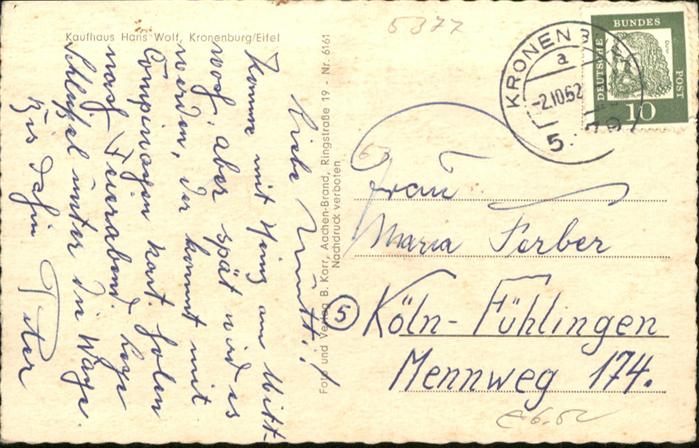 Kaufhaus Hans Wolf, Kronenburg/Eifel
5377
Liebe Mutti!
Komme mit Heinz am Mitt-
woch, aber spät wird es
werden. Der kommt mit
nach Feierabend. Lege
Schlüssel unter die Waage.
Bis dahin Peter
Foto und Verlag B. Karr, Aachen-Brand, Ringstraße 19 · Nr. 6161
Nachdruck verboten
KRONENB
a
-2.10.62
5
DEUTSCHE BUNDES POST
10
Frau
Maria Ferber
5 Köln-Fühlingen
Mennweg 174.